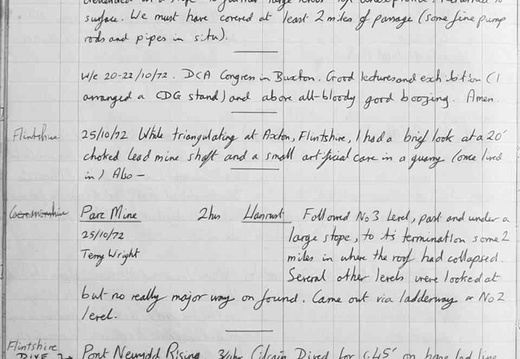 surface. We must have covered at least 2 miles of passage (some fine pump
rods and pipes in situ).
W/e 20-22/10/72. DCA Congress in Buxton. Good lectures and exhibition (I
arranged a CDG stand) and above all - bloody good boozing. Amen.
Flintshire 25/10/72 While triangulating at Axton, Flintshire, I had a brief look at a 20'
choked lead mine shaft and a small artificial cave in a quarry (once lived
in) Also -
Caernarvonshire Parc Mine 2hrs Llanrwst Followed No3 Level, past and under a
25/10/72 large stope, to its termination some 2
Terry Wright miles in where the roof had collapsed.
Several other levels were looked at
but no really major way on found. Came out via ladderway or No2
level.
Flintshire
Pont Newydd Rising Cilcain Dived for c.45' on base fed line